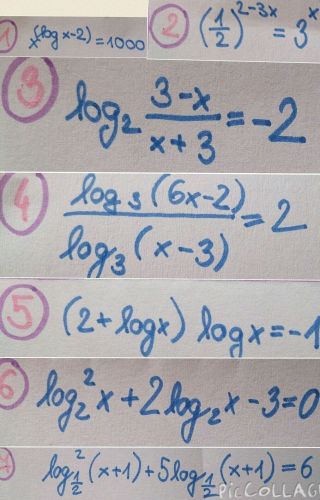 1 x^(log x-2) = 1000
2 (1/2)^2-3x = 3^x
3 log₂ 3-x/x+3 = -2
4 log₃(6x-2)/log₃(x-3) = 2
5 (2+logx) logx = -1
6 log₂²x + 2log₂x - 3 = 0
7 log²_1/2 (x+1) + 5log_1/2 (x+1) = 6
PicCOLLAGE